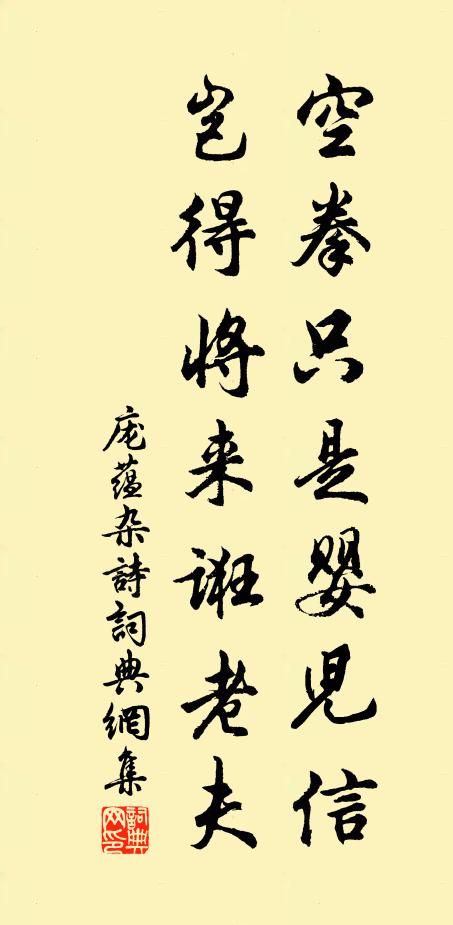 空拳只是嬰児信
岂得将来诳老夫
庞蕴杂詩詞典網集
詞典网印